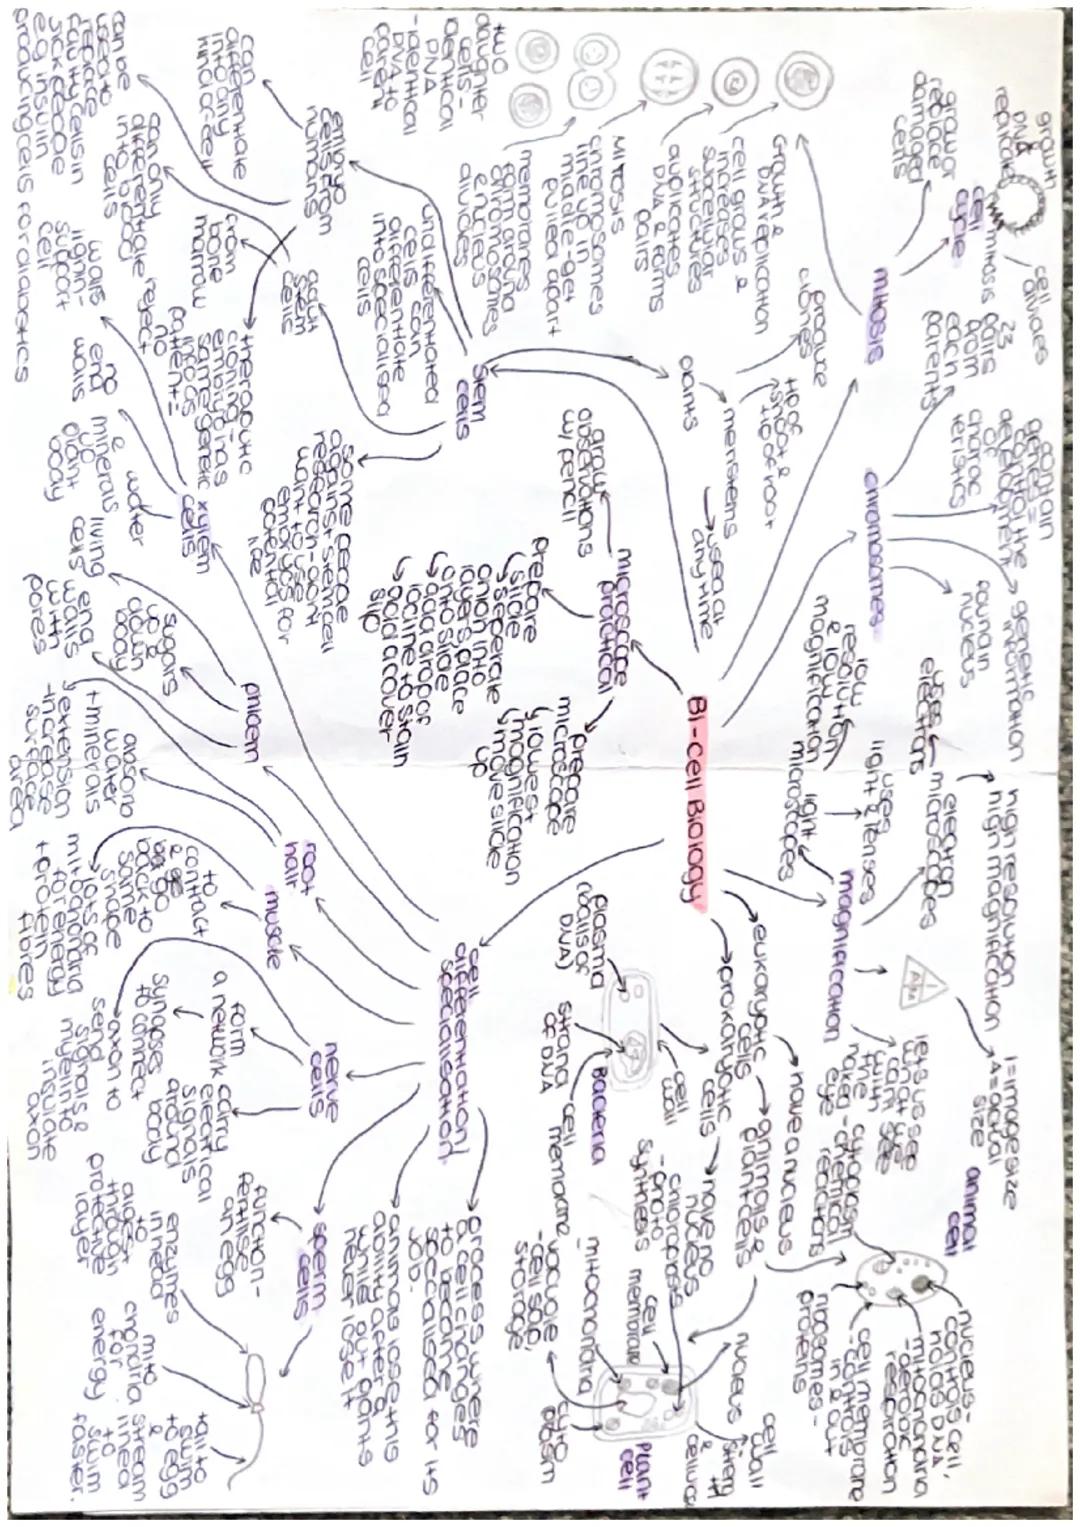 B1-Cell Biology
mitosis
growth
DNA
replicate
cell
cycle
mitosis
cell
divides
grow or
replace
damaged
cells
Growth &
DNA replication
cell grows &
increases
subcellular
structures
duplicates
DNA & forms
pairs
MITOSIS
chromosomes
line up in
middle-get
pulled apart
membranes
form around
chromosomes
& nucleus
divides
two
daughter
cells-
identical
DNA
-identical
DNA to
parent
cell
chromosomes
23
pairs
from
each
parents
contain
genes =
control the
development
of
charac
teristics
genetic
information
found in
nucleus
magnification
electron
microscopes
uses
electrons
high resolution
high magnification
light
microscopes
uses
light & lenses
low
resolution
& low
magnification
I=image size
A=actual
size
lets us see
what we
can't see
with
the
naked
eye
eukaryotic
cells
have a nucleus
animals &
plant cells
prokaryotic
cells
have no
nucleus
animal
cell
nucleus-
controls cell,
holds DNA
mitochondria
-aerobic
respiration
cell membrane
-controls
in & out
ribosomes-
proteins
cytoplasm
-chemical
reactions
Plant
cell
nucleus
cell
wall
-strength
&
cellulose
cyto
plasm
chloroplasts
-photo
synthesis
cell
membrane
mitochondria
vacuole
-cell sap,
storage
Bacteria
cell
wall
plasma
(coils of
DNA)
strand
of DNA
cell
membrane
microscope
practical
draw
observations
w/ pencil
prepare
slide
seperate
onion into
layers place
onto slide
add drop of
iodine to stain
add a cover
slip
prepare
microscope
lowest
magnification
move slide
up
stem
cells
plants
meristems
use at
any time
tip of
shoot &
tip of root
produce
clones
undifferentiated
cells can
differentiate
into specialised
cells
embryo
cells from
humans
can
differentiate
into any
kind of cell
can be
used to
replace
faulty cells in
sick people
e.g insulin
producing cells for diabetics
adult
stem
cells
from
bone
marrow
can only
differentiate
into blood
cells
therapeutic
cloning =
embryo has
same genetic
info as
patient=
no
reject
some people
against stem cell
research-don't
want to use
embryos for
potential
life
cell
differentiation/
specialisation
process where
a cell changes
to become
specialised for its
job.
animals lose this
ability after a
while but plants
never lose it
xylem
cells
walls
lignin-
support
cell
no
end
walls
water
&
minerals
up
plant
body
phloem
living
cells
sugars
up &
down
body
end
walls
with
pores
root
hair
absorb
water
+ minerals
extension
-increase
surface
area
muscle
to
contract
& go
back to
same
shape
lots of
mitochondria
for energy
+ protein
fibres
nerve
cells
form
a network
synapses
to connect
carry
electrical
signals
around
body
axon to
send
signals &
myelin to
insulate
axon
sperm
cells
function-
fertilise
an egg
enzymes
in head
to
digest
through
protective
layer
mito
chondria
for
energy
tail to
swim
to egg
&
stream
lined
to
swim
faster.